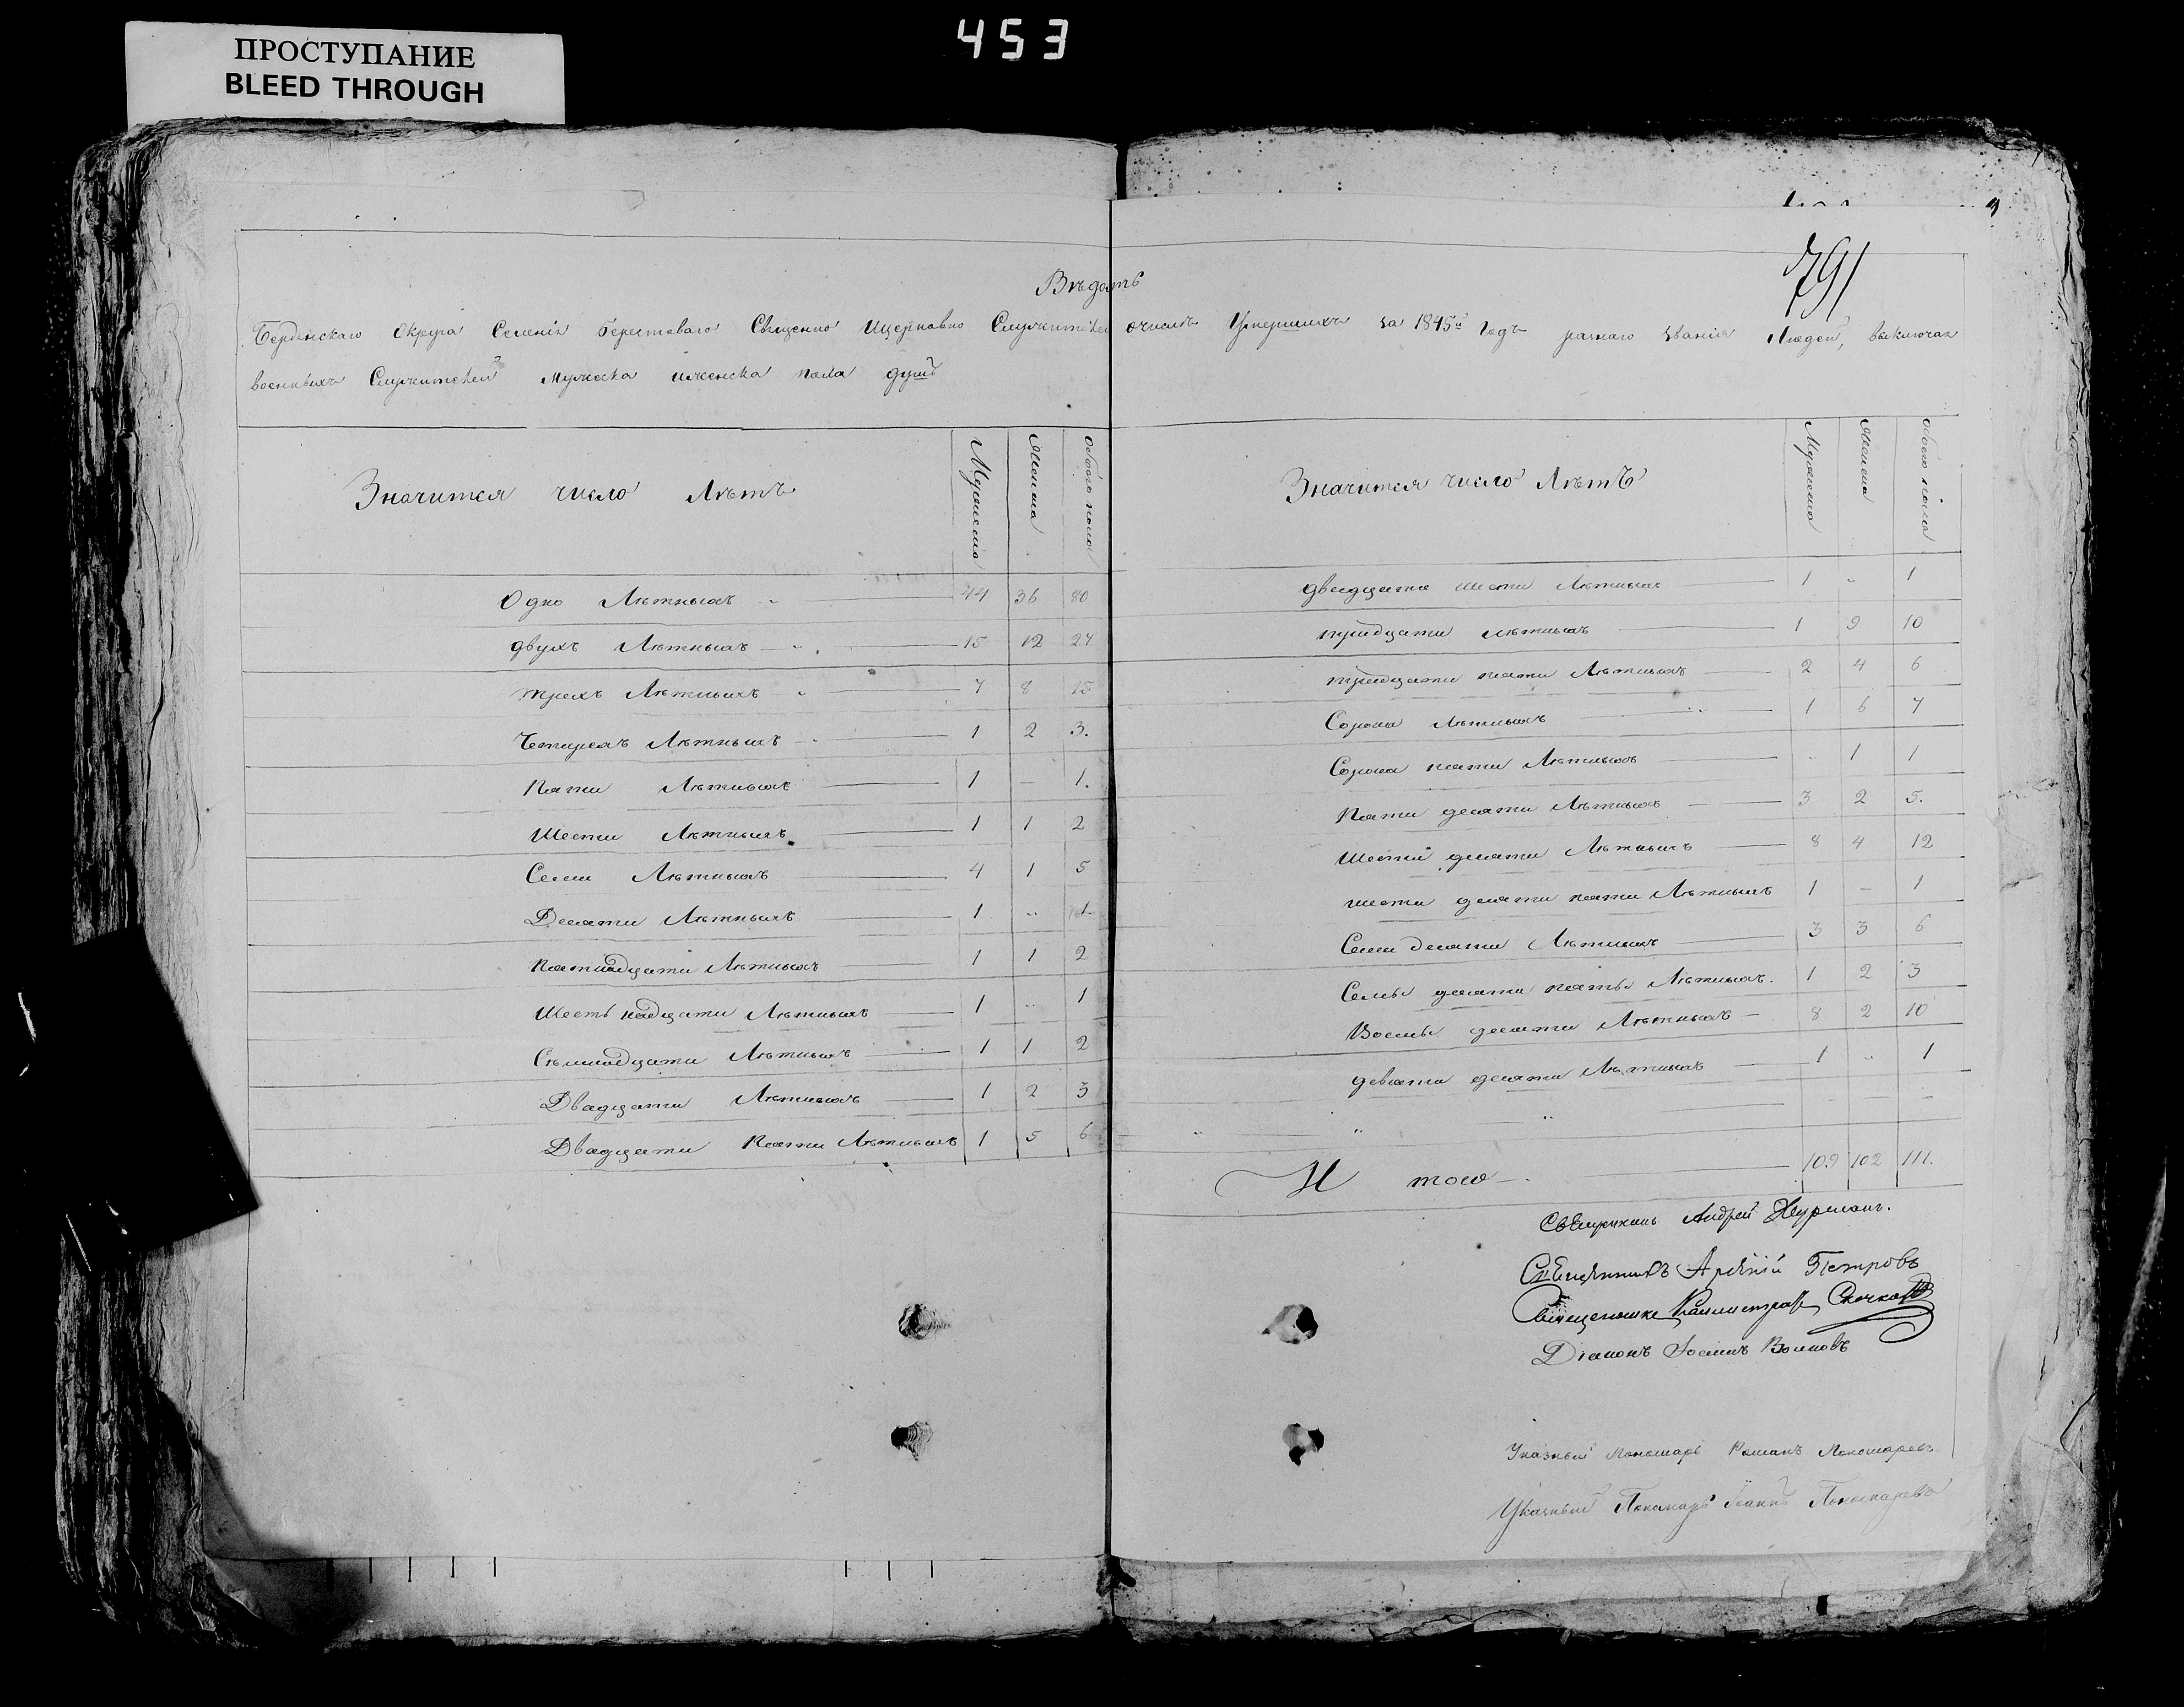 453
ПРОСТУПАНИЕ
BLEED THROUGH
791
Вѣдомъ
Бердянскаго Округа Селенія Берестоваго Священно Ицерковно Служителей очислѣ Умершихъ за 1845й Годъ разнаго Званія Людей, выключая
военныхъ Служителей мужеска иженска пола душъ
Значится число Лѣтъ Мужеска Женска обоего пола
Одно Лѣтныхъ 44 36 80
двухъ Лѣтныхъ 15 12 27
трехъ Лѣтныхъ 7 8 15
Четырехъ Лѣтныхъ 1 2 3.
Пяти Лѣтныхъ 1 — 1.
Шести Лѣтныхъ 1 1 2
Семи Лѣтныхъ 4 1 5
Десяти Лѣтныхъ 1 .. 1
Пятнадцати Лѣтныхъ 1 1 2
Шестьнадцати Лѣтныхъ 1 .. 1
Сѣмнадцати Лѣтныхъ 1 1 2
Двадцати Лѣтныхъ 1 2 3
Двадцати Пяти Лѣтныхъ 1 5 6
Значится число Лѣтъ Мужеска Женска обоего пола
двадцати шести Лѣтныхъ 1 .. 1
тридцати лѣтныхъ 1 9 10
тридцати пяти Лѣтныхъ 2 4 6
Сорока Лѣтныхъ 1 6 7
Сорока пяти Лѣтныхъ .. 1 1
Пяти десяти Лѣтныхъ 3 2 5.
Шести десяти Лѣтныхъ 8 4 12
шести десяти пяти Лѣтныхъ 1 — 1
Семи десяти Лѣтныхъ 3 3 6
Семы десяти пяты Лѣтныхъ. 1 2 3
Восмы десяти Лѣтныхъ 8 2 10
девяти десяти Лѣтныхъ 1 .. 1
И того 109 102 111.
Священникъ Андрей
Священникъ Арсений Петровъ
Священникъ
Діаконъ Іоаннъ
Указный Пономарь Романъ Пономаревъ
Указный Пономарь Іоаннъ Пономаревъ